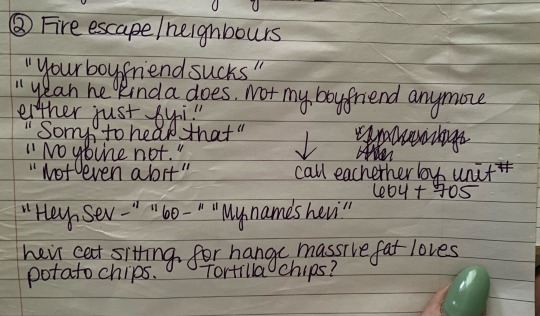 ② Fire escape/neighbours
"Your boyfriend sucks"
"yeah he kinda does. Not my boyfriend anymore
either just fyi."
"Sorry to hear that"
"No you're not."
"Not even a bit"
↓ call eachother by unit #
604 + 705
"Hey, Sev-" "60-" "My names hevi"
hevi cat sitting for hange massive fat loves
potato chips. Tortilla chips?